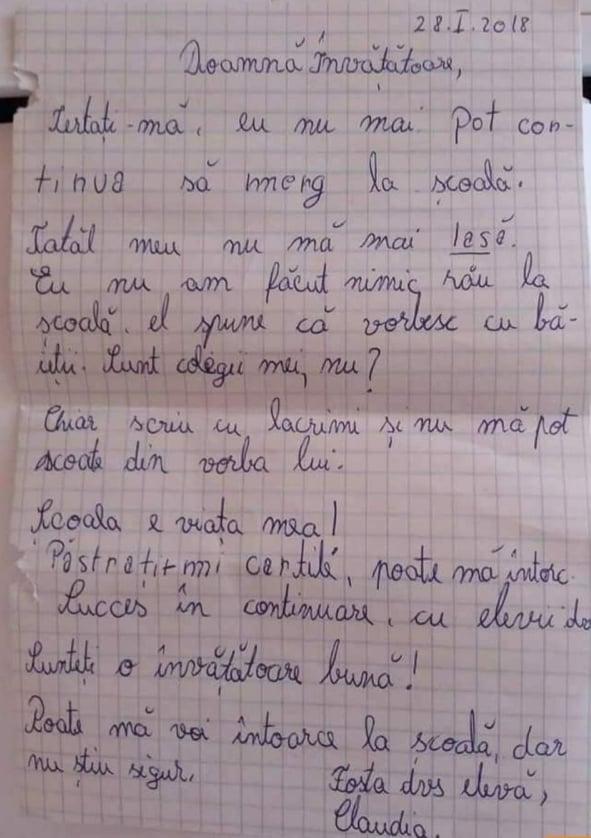 28.I.2018
Doamnă Învățătoare,
Iertați-mă, eu nu mai pot con-
tinua să merg la școală.
Tatăl meu nu mă mai lasă.
Eu nu am făcut nimic rău la
școală. el spune că vorbesc cu bă-
ieții. Sunt colegii mei, nu?
Chiar scriu cu lacrimi și nu mă pot
scoate din vorba lui.
Școala e viața mea!
Păstrați-mi cărțile, poate mă întorc.
Succes în continuare, cu elevii dvs
Sunteți o învățătoare bună!
Poate mă voi întoarce la școală, dar
nu știu sigur.
Fosta dvs elevă,
Claudia.